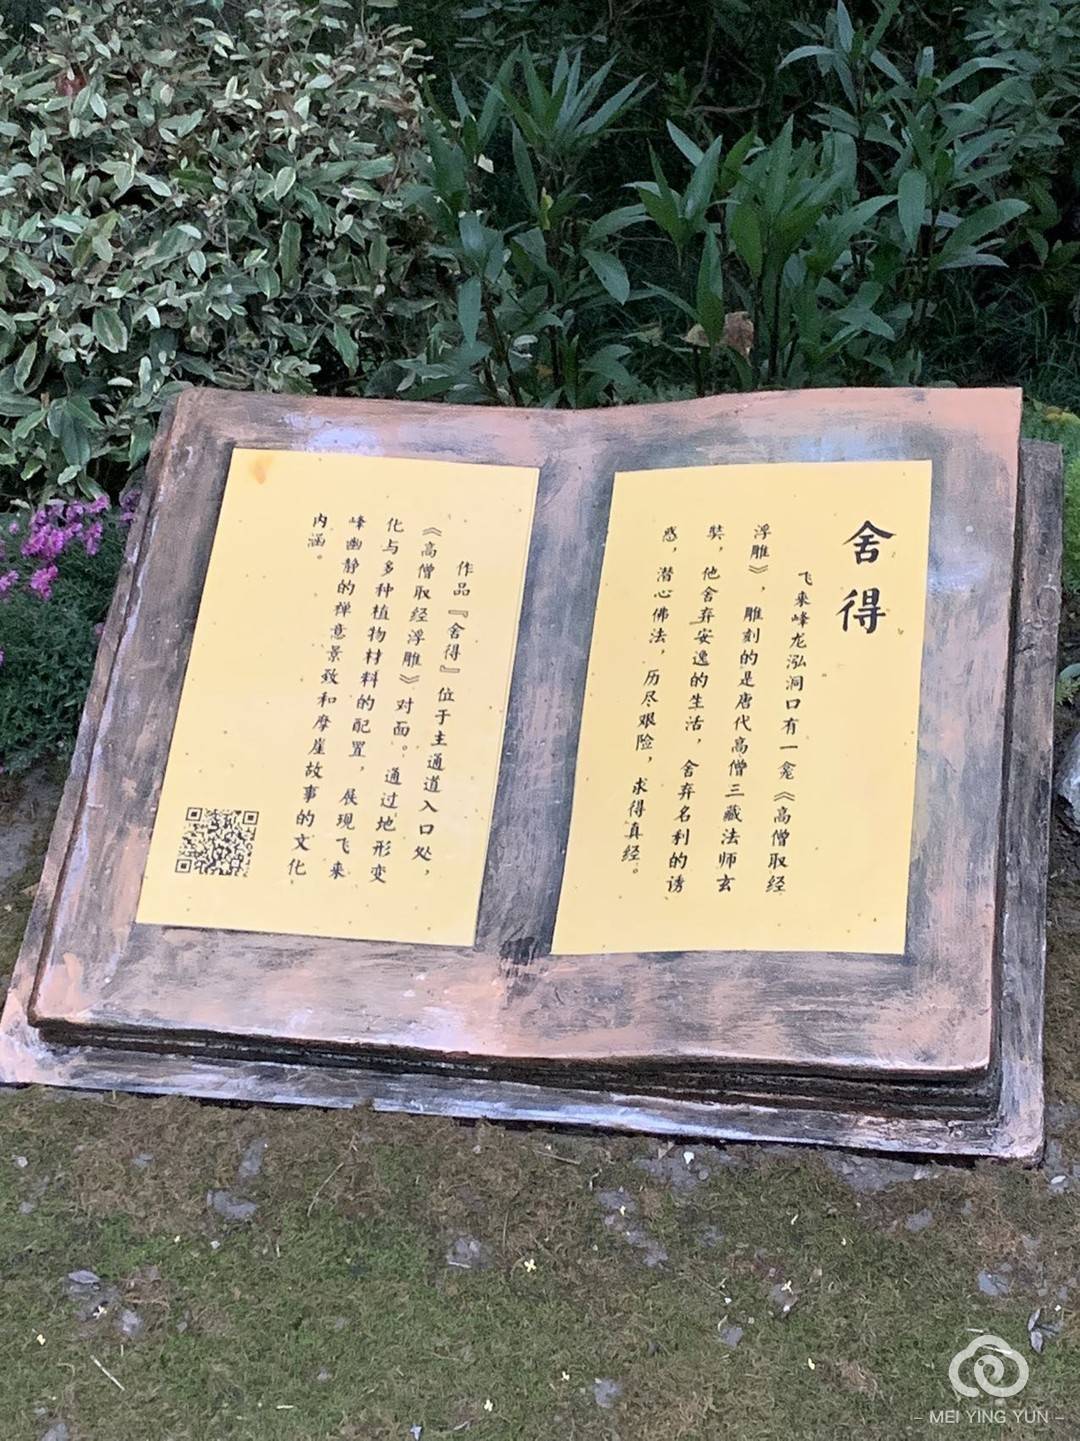 舍得
飞来峰龙泓洞口有一龛《高僧取经
浮雕》，雕刻的是唐代高僧三藏法师玄
奘，他舍弃安逸的生活，舍弃名利的诱
惑，潜心佛法，历尽艰险，求得真经。
作品『舍得』位于主通道入口处，
《高僧取经浮雕》对面。通过地形变
化与多种植物材料的配置，展现飞来
峰幽静的禅意景致和摩崖故事的文化
内涵。
– MEI YING YUN –